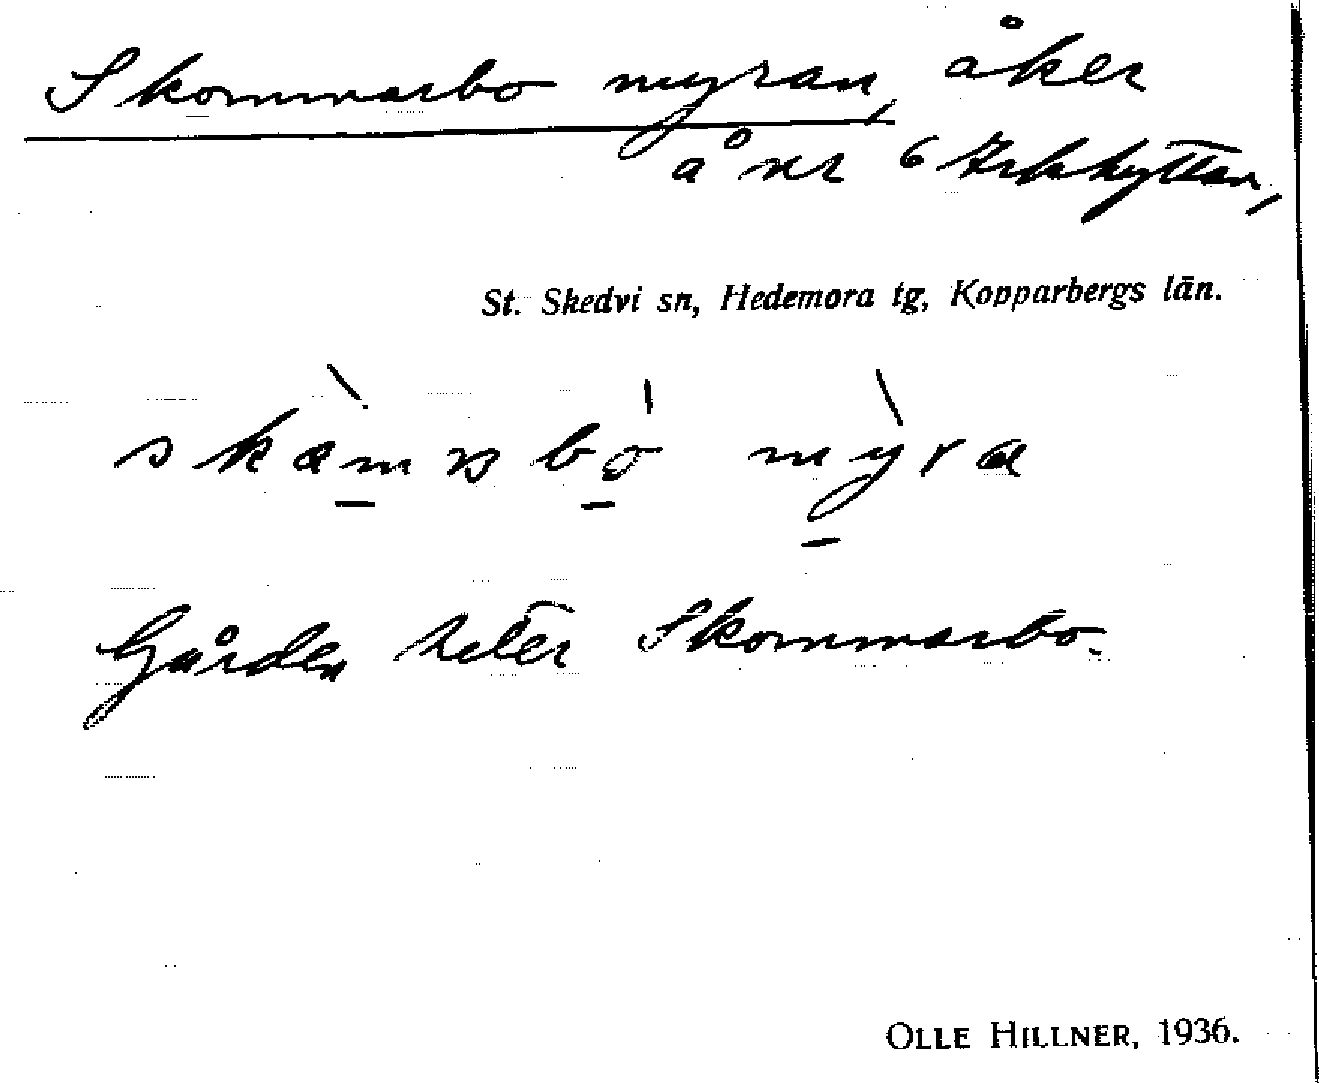 Skommarbo myran, åker
å nr 6 Arkhyttan,
St. Skedvi sn, Hedemora tg, Kopparbergs län.
myra
Gården heter Skommarbo.
OLLE HILLNER, 1936.